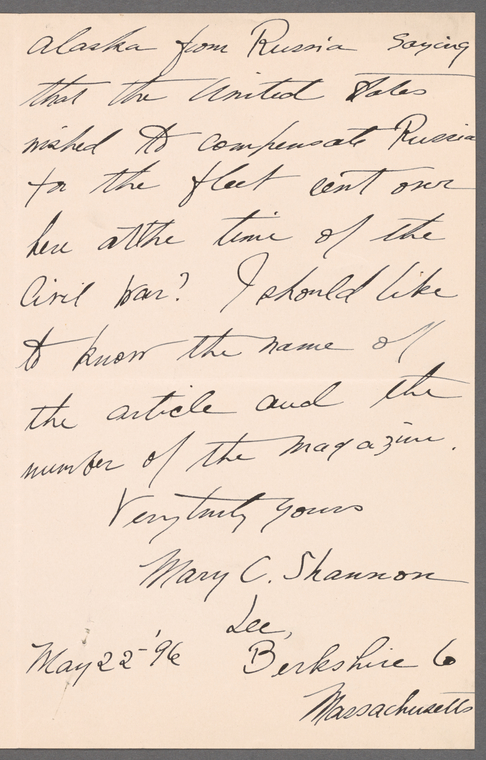 Alaska from Russia saying
that the United States
wished to compensate Russia
for the fleet sent over
here at the time of the
Civil War? I should like
to know the name of
the article and the
number of the magazine.
Very truly yours
Mary C. Shannon
Lee,
May 22 '96 Berkshire Co
Massachusetts